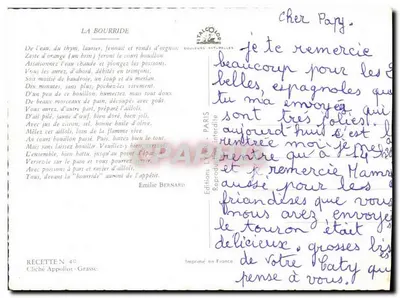 LA BOURRIDE
De l'eau, du thym, laurier, fenouil et ronds d'oignon
Zeste d'orange (un brin) feront le court bouillon
Assaisonnez l'eau chaude et plongez les poissons.
Vous les aurez, d'abord, débités en tronçons,
Soit malin de baudroie, un loup et du merlan
Dix minutes, sans plus, pochez-les vivement.
D'un peu de ce bouillon, humectez, mais tout doux
De beaux morceaux de pain, découpés avec goût.
D'autre part, préparez, pour six, un aïoli,
D'ail pilé, jaunis d'œuf, bien doré, bien poli,
Avec jus de citron, sel, bonne huile d'olive
Mêlez cet ailloli, loin de la flamme vive
Au court-bouillon passé. Puis, battez bien le tout
Mais sans laisser bouillir
L'ensemble, bien battu, jusqu'au
Versez-le sur le pain et vous pourrez
Avec poissons à part et rosier d'ailloli,
Tous, devant la "bourride" auront de l'appétit.
Emilie BERNARD
RECETTE N° 45
Cliché Appollot - Grasse
Editions
PARIS
Imprimé en France
Cher Papy.
je te remercie
beaucoup pour les 2
belles, espagnoles que
tu m'a envoyez qui
sont très jolies
aujourd'huis c'est la
rentrée moi je me
rentre qu'à 1-24
et je remercie Mamy
aussie pour les
friandises que vous
nous avez envoyez
le touron était
délicieux. grosses bis
de votre Caty qui
pense à vous.